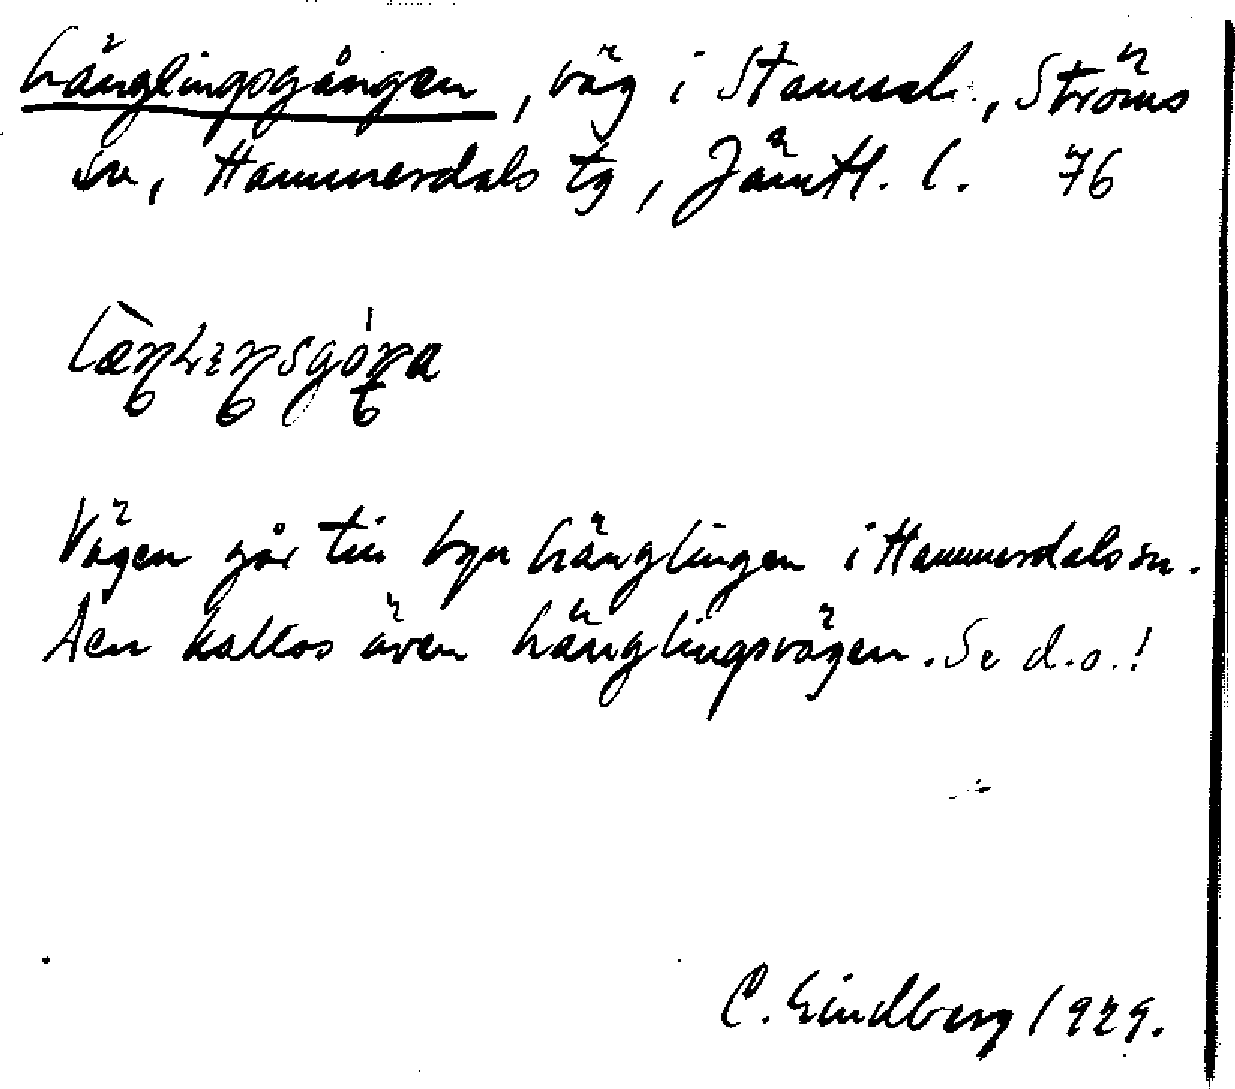 Länglingsgången, väg i Stamsel., Ströms
sn, Hammerdals tg, Jämtl. l. 76
Vägen går till byn Länglingen i Hammerdals sn.
Den kallas även Länglingsvägen. Se d.o.!
C. Lindberg 1929.